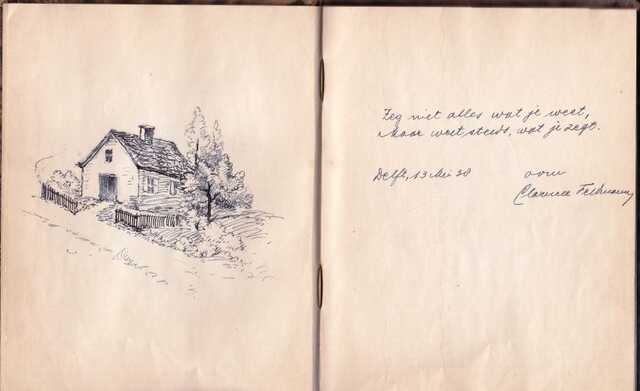 Zeg niet alles wat je weet,
Maar weet steeds, wat je zegt.
Delft, 13 Mei 38
oom
Clarence Feldmann